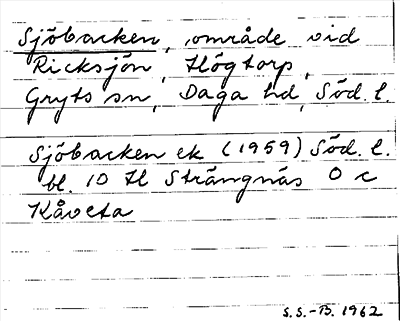 Sjöbacken, område vid
Ricksjön, Högtorp,
Gryts sn, Daga hd, Söd. l.
Sjöbacken ek (1959) Söd. l.
bl. 10 H Strängnäs 0 c
Kåveta
S.S.-B. 1962